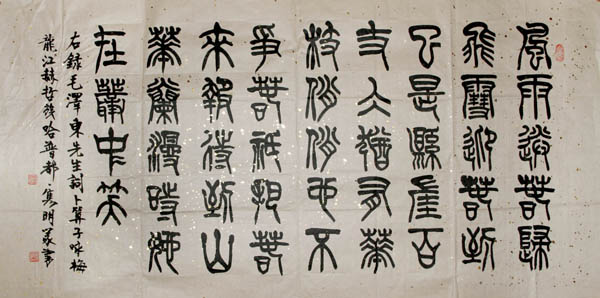 風雨送春歸
飛雪迎春到
已是縣崖百
丈仌猶有華
枝俏俏也不
爭春祇把春
來報待到山
華蘭漫時她
在叢中笑
右錄毛澤東先生詞卜算子咏梅
龍江赫哲族哈普都·隽明篆書